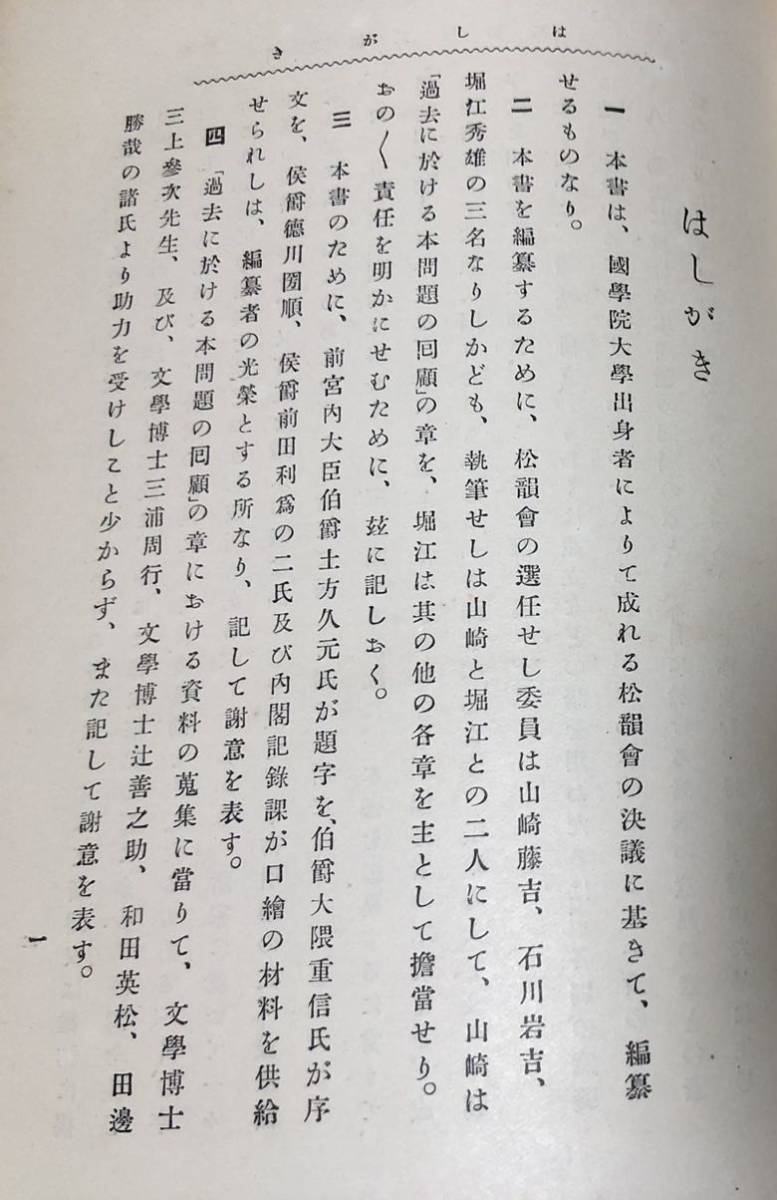 はしがき
はしがき
一　本書は、國學院大學出身者によりて成れる松韻會の決議に基きて、編纂
せるものなり。
二　本書を編纂するために、松韻會の選任せし委員は山崎藤吉、石川岩吉、
堀江秀雄の三名なりしかども、執筆せしは山崎と堀江との二人にして、山崎は
「過去に於ける本問題の囘顧」の章を、堀江は其の他の各章を主として擔當せり。
おの〱責任を明かにせむために、玆に記しおく。
三　本書のために、前宮內大臣伯爵土方久元氏が題字を、伯爵大隈重信氏が序
文を、侯爵德川圀順、侯爵前田利爲の二氏及び內閣記錄課が口繪の材料を供給
せられしは、編纂者の光榮とする所なり、記して謝意を表す。
四　「過去に於ける本問題の囘顧」の章における資料の蒐集に當りて、文學博士
三上參次先生、及び、文學博士三浦周行、文學博士辻善之助、和田英松、田邊
勝哉の諸氏より助力を受けしこと少からず、また記して謝意を表す。
一